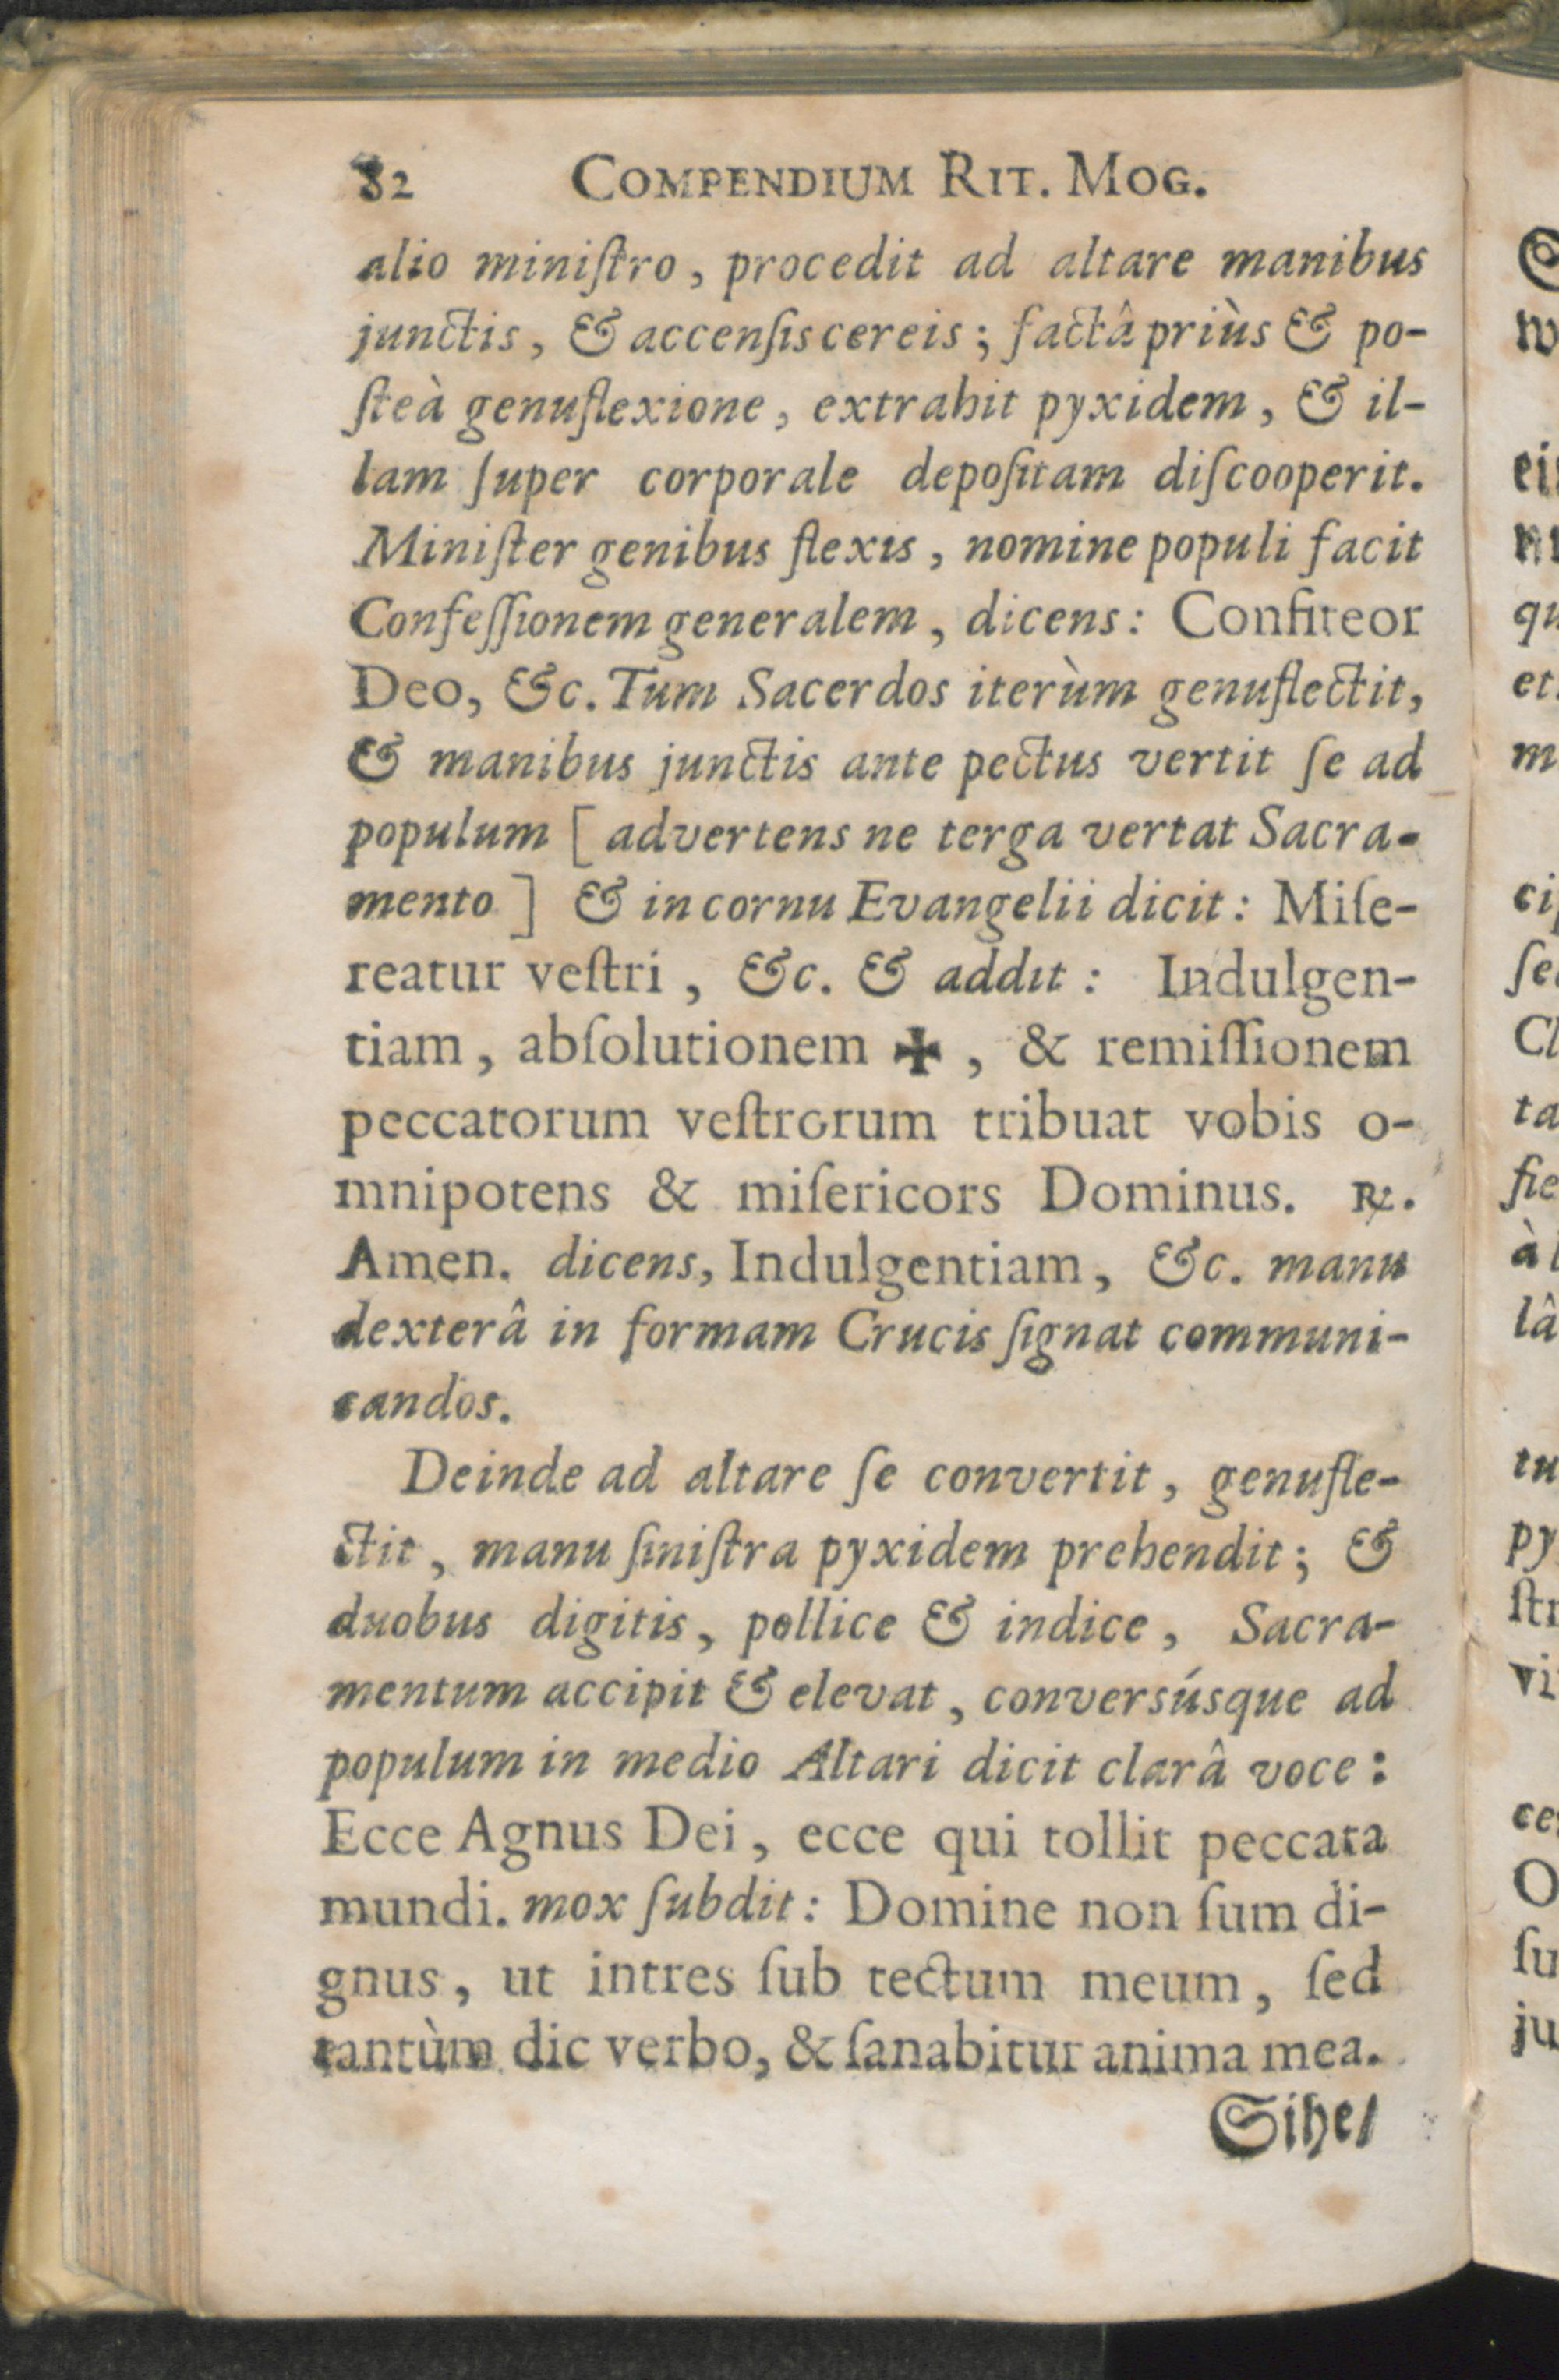 82 COMPENDIUM RIT. MOG.
alio miniſtro, procedit ad altare manibus
junctis, & accenſis cereis; factâ priùs & po-
ſteà genuflexione, extrahit pyxidem, & il-
lam ſuper corporale depoſitam diſcooperit.
Miniſter genibus flexis, nomine populi facit
Confeſſionem generalem, dicens: Confiteor
Deo, &c. Tum Sacerdos iterùm genuflectit,
& manibus junctis ante pectus vertit ſe ad
populum [advertens ne terga vertat Sacra-
mento] & in cornu Evangelii dicit: Miſe-
reatur veſtri, &c. & addit: Indulgen-
tiam, abſolutionem ✠, & remiſſionem
peccatorum veſtrorum tribuat vobis o-
mnipotens & miſericors Dominus. ℟.
Amen. dicens, Indulgentiam, &c. manu
dexterâ in formam Crucis ſignat communi-
candos.
Deinde ad altare ſe convertit, genufle-
ctit, manu ſiniſtra pyxidem prehendit; &
duobus digitis, pollice & indice, Sacra-
mentum accipit & elevat, conversúsque ad
populum in medio Altari dicit clarâ voce:
Ecce Agnus Dei, ecce qui tollit peccata
mundi. mox ſubdit: Domine non ſum di-
gnus, ut intres ſub tectum meum, ſed
tantùm dic verbo, & ſanabitur anima mea.
Sihe/